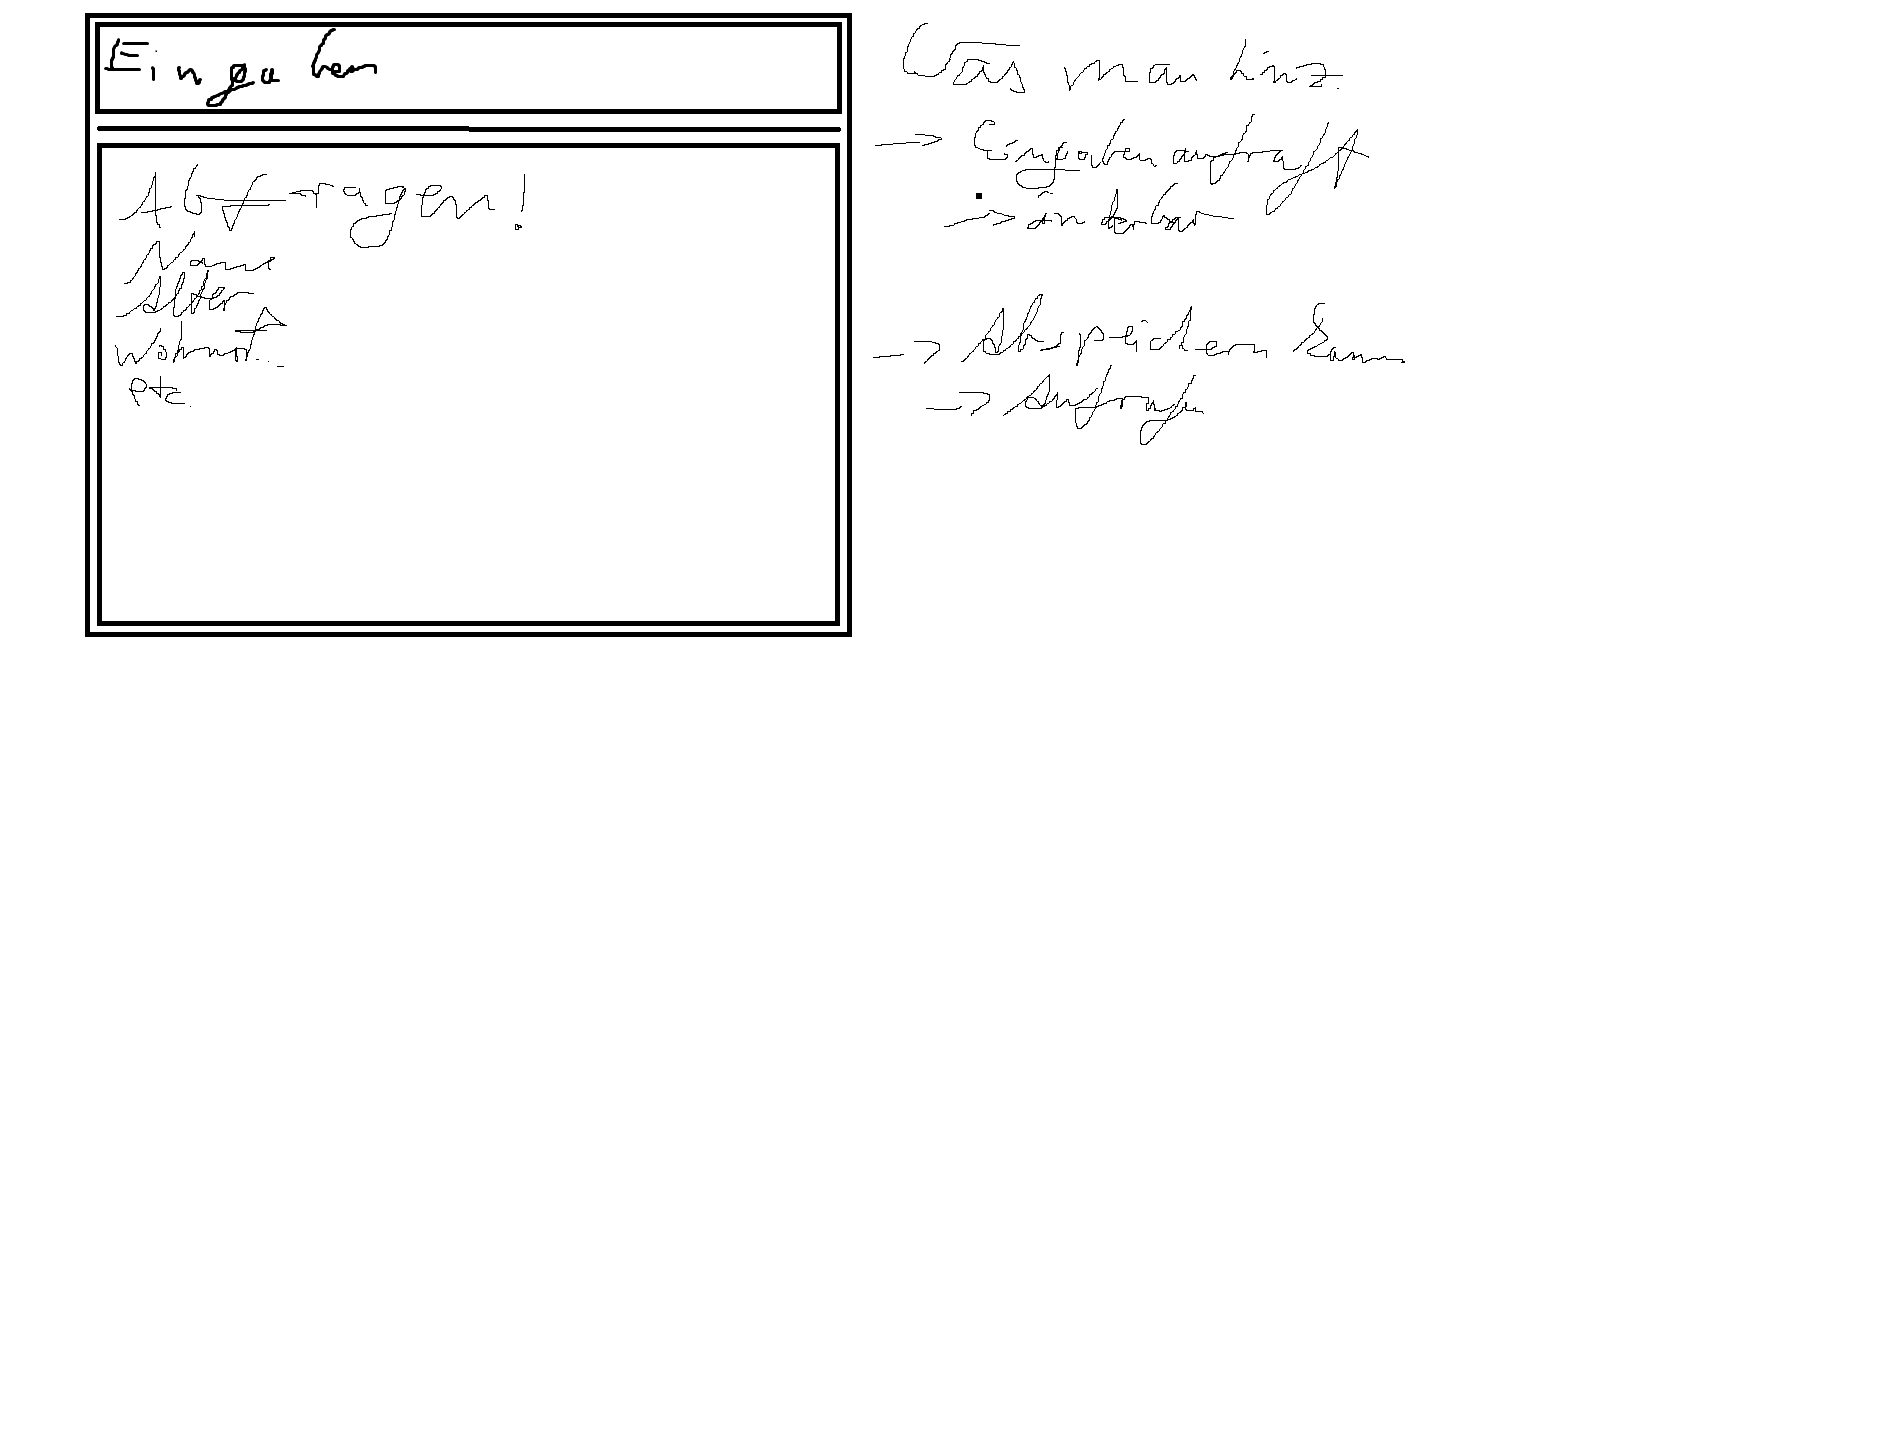 Eingaben
Abfragen!
Name
Alter
Wohnort...
etc.
Was man hinz.
→ Eingaben aufruft
→ änderbar
→ Abspeichern kann
→ Aufrufen